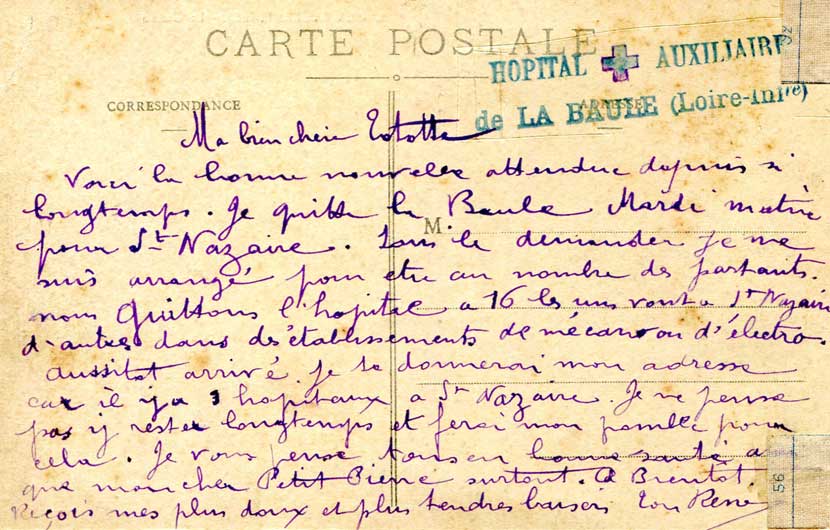 CARTE POSTALE
HOPITAL AUXILIAIRE
de LA BAULE (Loire-Infre)
CORRESPONDANCE
ADRESSE
Ma bien chère Tototte
Voici la bonne nouvelle attendue depuis si
longtemps. Je quitte la Baule Mardi matin
M.
pour St Nazaire. Sans le demander je me
suis arrangé pour etre au nombre des partants.
nous Quittons l'hopital a 16 les uns vont a St Nazaire
d'autres dans des établissements de mécanou d'électro.
Aussitot arrivé je te donnerai mon adresse
car il y a 3 hopitaux a St Nazaire. Je ne pense
pas y rester longtemps et ferai mon possible pour
cela. Je vous pense tous en bonne santé a
que mon cher Petit Pierre surtout. A Bientot.
Reçois mes plus doux et plus tendres baisers Ton René
92
56